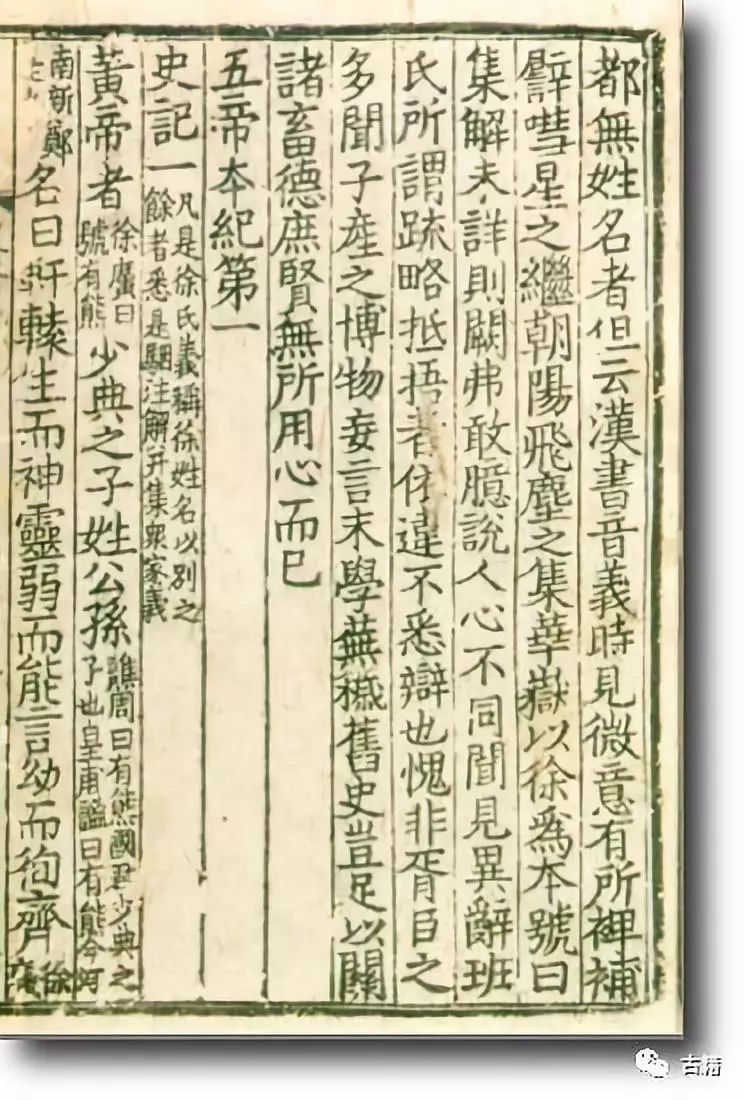 都無姓名者但云漢書音義時見微意有所裨補
譬嘒星之繼朝陽飛塵之集華嶽以徐爲本號曰
集解未詳則闕弗敢臆說人心不同聞見異辭班
氏所謂疏略抵捂者依違不悉辯也愧非胥臣之
多聞子產之博物妄言末學蕪穢舊史豈足以關
諸畜德庶賢無所用心而已
五帝本紀第一
史記一凡是徐氏義稱徐姓名以別之餘者悉是駰注解并集眾家義
黃帝者徐廣曰號有熊少典之子姓公孫譙周曰有熊國君少典之子也皇甫謐曰有熊今河
南新鄭名曰軒轅生而神靈弱而能言幼而徇齊徐廣